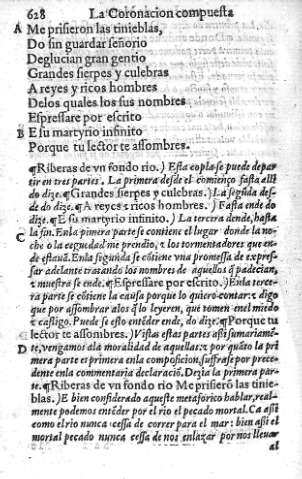 628 La Coronacion compuesta
A Me prisieron las tinieblas,
Do sin guardar señorio
Deglucian gran gentio
Grandes sierpes y culebras
A reyes y ricos hombres
Delos quales los sus nombres
Espressare por escrito
B E su martyrio infinito
Porque tu lector te assombres.
¶Riberas de vn fondo rio.) Esta copla se puede depar
tir en tres partes. La primera desde el comienço fasta alli
do dize. ¶Grandes sierpes y culebras.) La segũda des-
de do dize. ¶A reyes z ricos hombres.) Fasta ende do
dize. ¶E su martyrio infinito.) La tercera dende, hasta
C la fin. Enla pimera parte se contiene el lugar donde la no-
che o la ceguedad me prendio, z los tormentadores que en-
de estauã. Enla segunda se cõtiene vna promessa de expres-
sar adelante tratando los nombres de aquellos q̃ padecian,
z muestra se ende. ¶Espressare por escrito.) Enla terce-
ra parte se cõtiene la causa porque lo quiero contar: z digo
que por assombrar alos q̃ lo leyeren, que tomen enel miedo
z castigo. Puede se esto entẽder ende, do dize. ¶Porque tu
lector te assombres.) Vistas estas partes assi sumariamẽ-
D te, vengamos ala moralidad de aquellas: z por quãto la pri
mera parte es primera enla composicion, suffrase por prece-
dente enla commentaria declaraciõ. Dezia la primera par-
te. ¶Riberas de vn fondo rio Me prisierõ las tinie-
blas.) E bien considerado aqueste metaforico hablar, real-
mente podemos entẽder por el rio el pecado mortal. Ca assi
como el rio nunca cessa de correr para el mar: bien assi el
mortal pecado nunca cessa de nos enlazar por nos lleuar
al